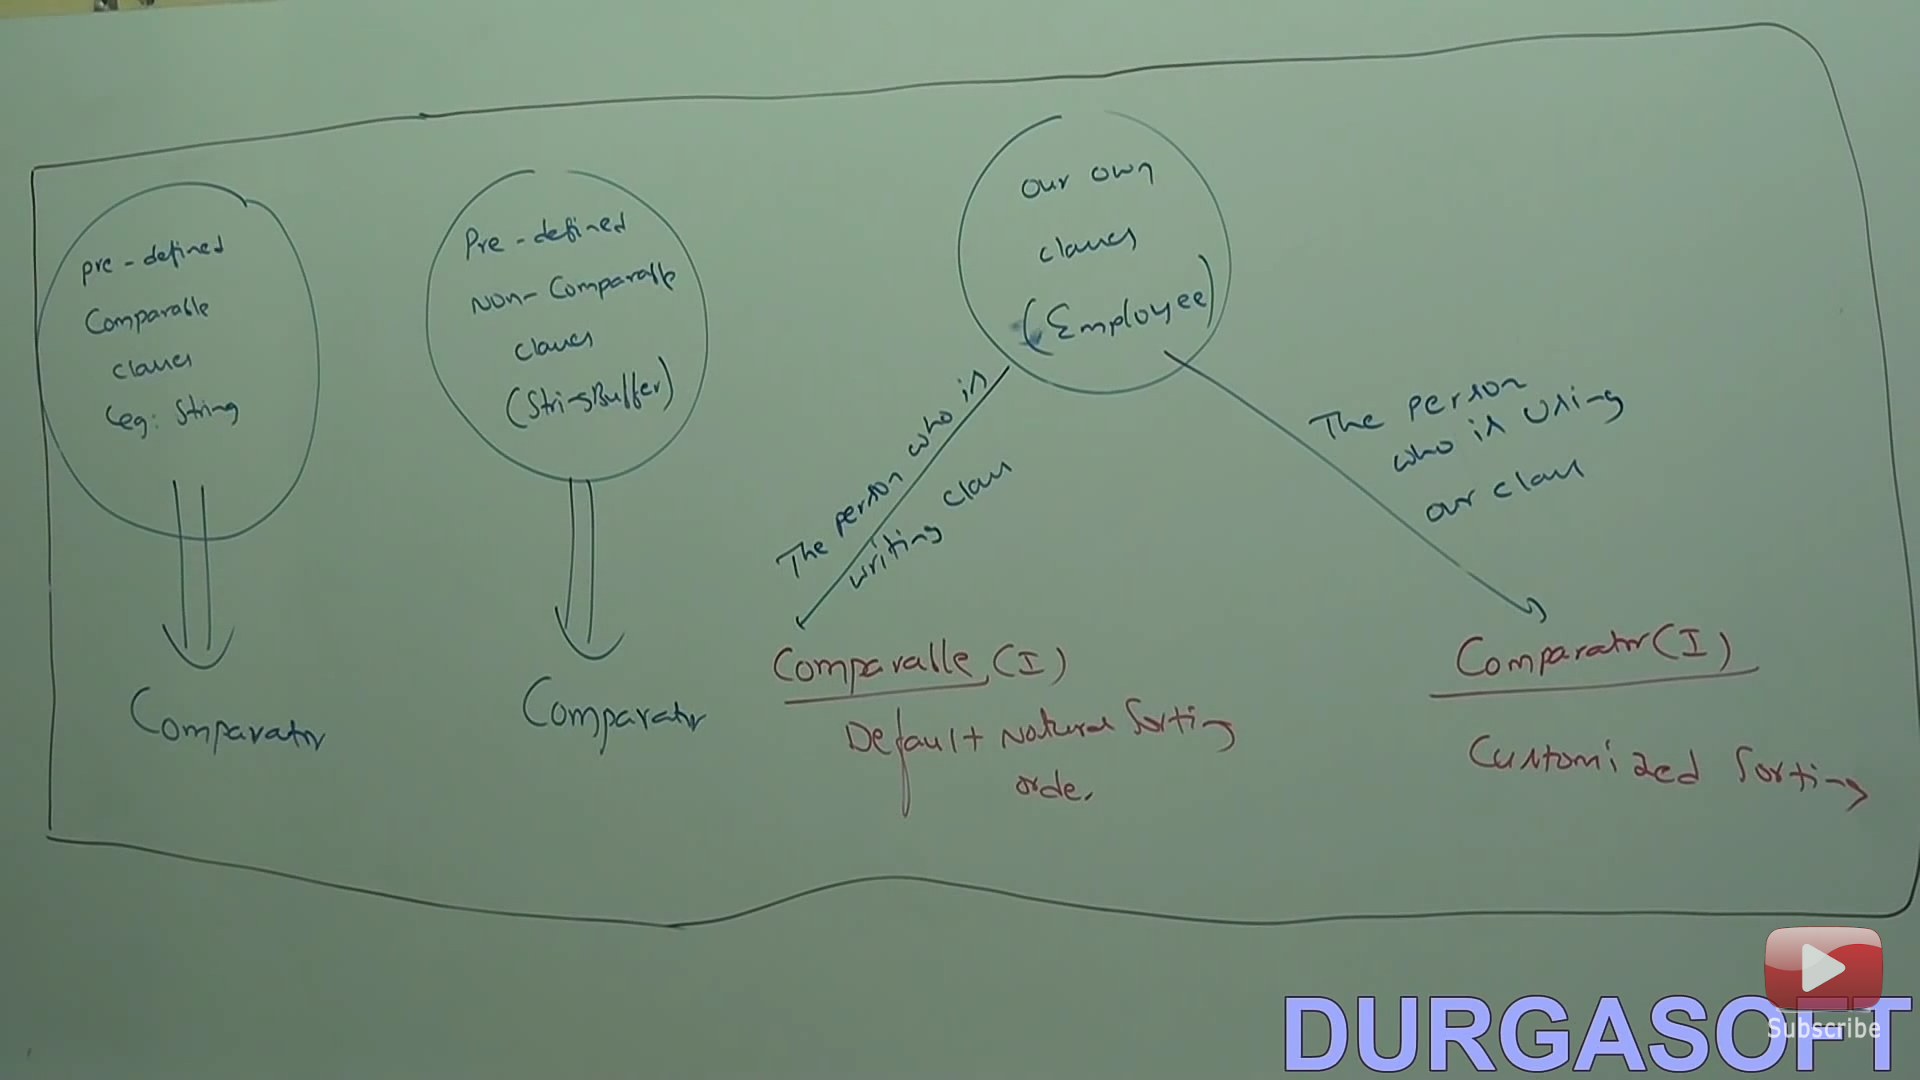 pre-defined
Comparable
classes
eg: String
Comparator
Pre-defined
Non-Comparable
classes
(StringBuffer)
Comparator
our own
classes
(Employee)
The person who is
writing class
Comparable (I)
Default Natural Sorting
order
The person
who is using
our class
Comparator (I)
Customized Sorting
Subscribe
DURGASOFT